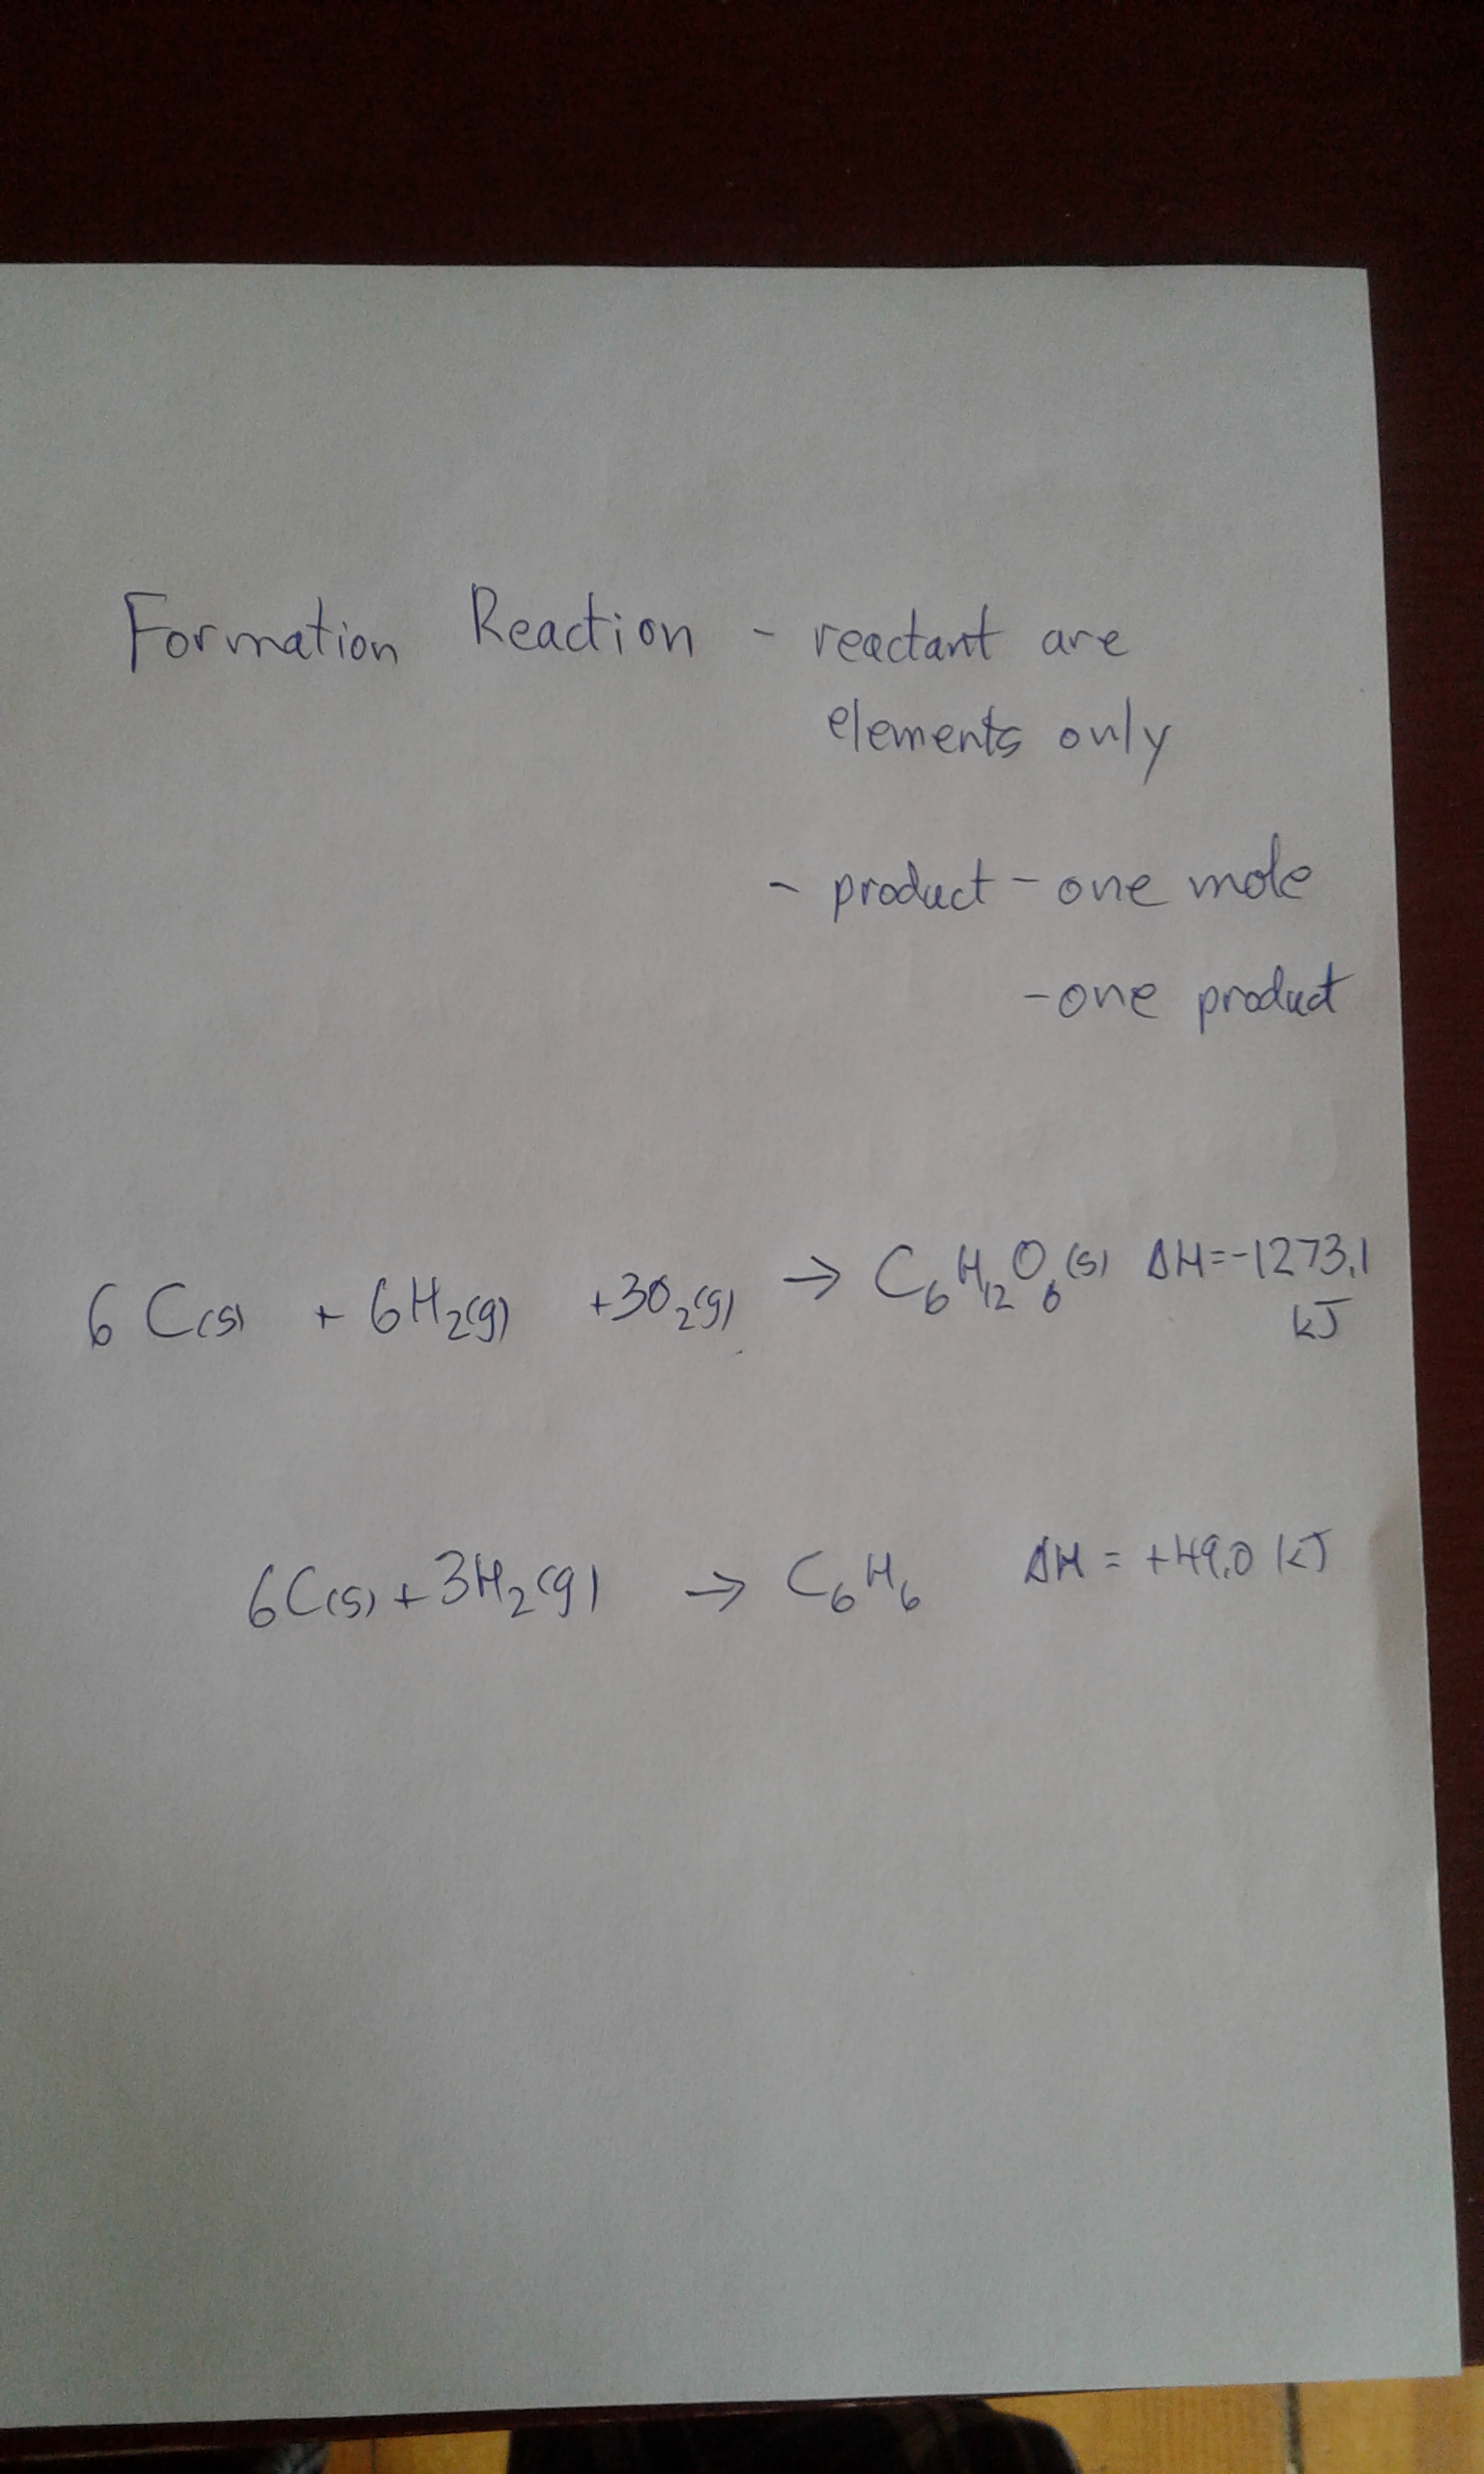 Formation Reaction - reactant are
elements only
- product - one mole
- one product
6 C(s) + 6H₂(g) + 3O₂(g) → C₆H₁₂O₆(s) ΔH = -1273.1
kJ
6C(s) + 3H₂(g) → C₆H₆ ΔH = +49.0 kJ